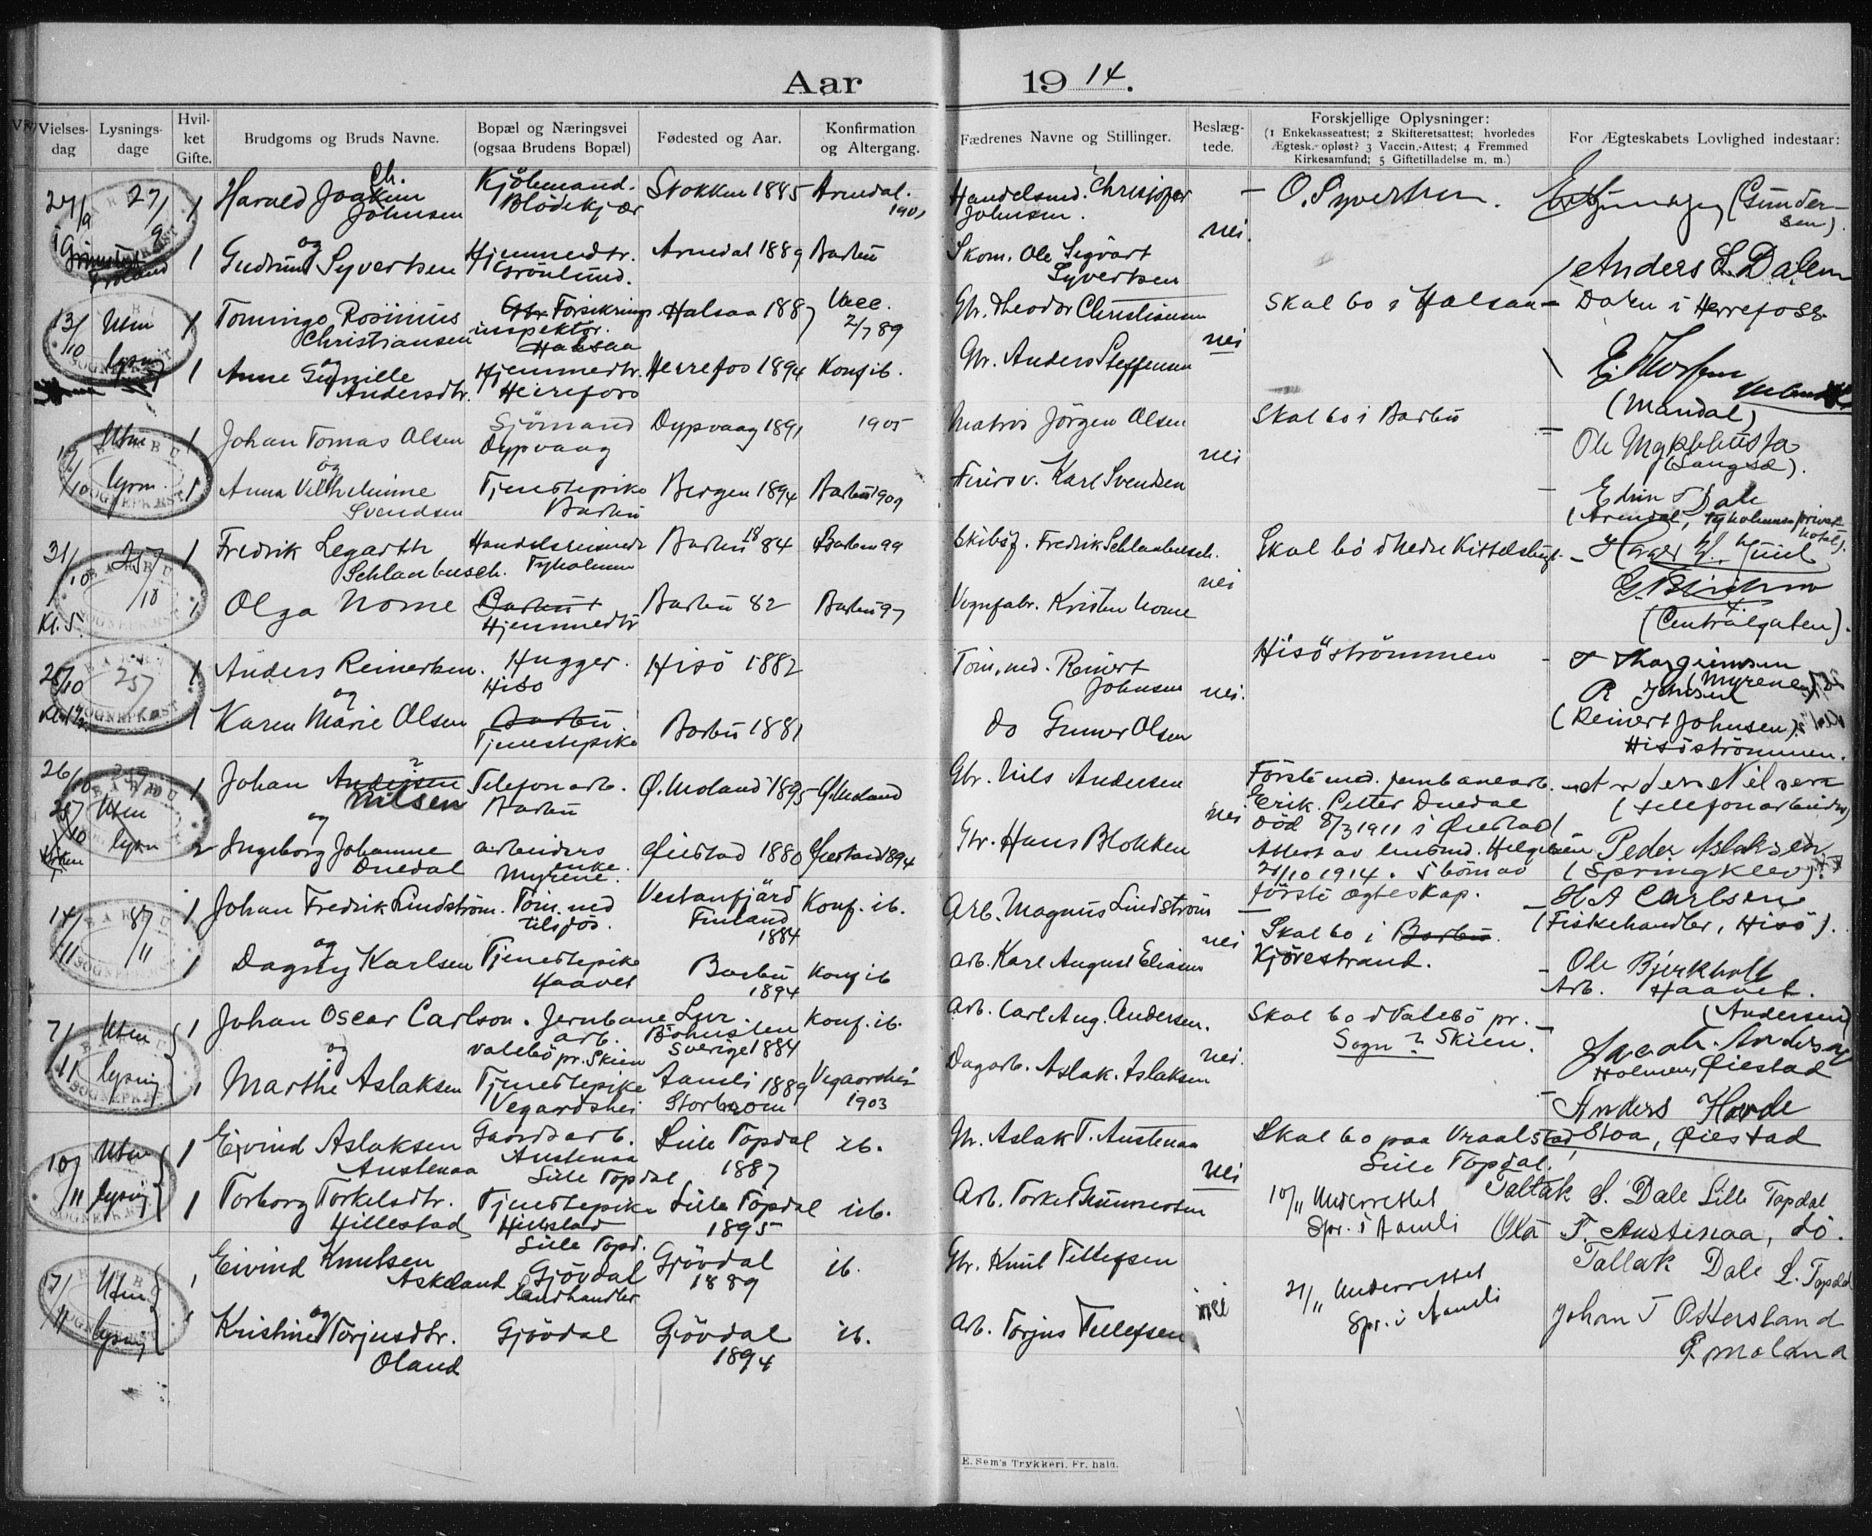 Aar 1914.
Vielses-dag
Lysnings-dage
Hvil-ket Gifte.
Brudgoms og Bruds Navne.
Bopæl og Næringsvei (ogsaa Brudens Bopæl)
Fødested og Aar.
Konfirmation og Altergang.
Fædrenes Navne og Stillinger.
Beslæg-tede.
Forskjellige Oplysninger:
(1 Enkekasseattest; 2 Skifteretsattest; hvorledes
Ægtesk. opløst? 3 Vaccin.-Attest; 4 Fremmed
Kirkesamfund; 5 Giftetilladelse m. m.)
For Ægteskabets Lovlighed indestaar:
27/9 27/9 1 Harald Joakim Ch. Johnsen Kjöbmand. Blödekjær Stokken 1885 Arendal. 1901 Handelsmd. Christofer Johnsen. – O. Syvertsen. (Gundersen).
Grimstad Froland 1 og Gudrun Syvertsen Hjemmedtr. Grönlund. Arendal 1889 Barbu Skom. Ole Sigvart Syvertsen nei. Anders L. Dalen
13/10 Uten lysn 1 Tominge Rosinius Christiansen Forsikrings inspektör. Halsaa Halsaa 1887 Vacc. 2/7 89 Gbr. Theodor Christiansen Skal bo i Halsaa – Dalen i Herrefoss
1 og Anne Gunille Andersdtr. Hjemmedtr. Herrefoss Herrefos 1894 Konf ib. Gbr. Anders Steffensen nei (Mandal)
/10 Uten lysn. 1 Johan Tomas Olsen Sjömand Dypvaag Dypvaag 1891 1905 Matros Jörgen Olsen Skal bo i Barbu Ole (Langsæ).
1 og Anna Vilhelmine Svendsen Tjenestepike Barbu Bergen 1894 Barbu 1909 Karl Svendsen nei – Edvin Dale (Arendal, Tyholmen privat hotel).
31/10 Kl. 5. 25/10 1 Fredrik Legarth Schlanbusch. Handelsreisende Tyholmen Barbu 1884 Barbu 99 Skibsf. Fredrik Schlanbusch. Skal bo i Nedre Kittelsbugt –
1 Olga Nome Barbu Hjemmedtr Barbu 82 Barbu 97 Vognfabr. Kristen Nome nei (Centralgaten).
25/10 25/ 1 Anders Reinertsen. Hugger. Hisö Hisö 1882 Töm.md. Reinert Johnsen Hisöströmmen – Thorgrimsen (Myrene)
1 og Karen Marie Olsen Barbu Tjenestepike Barbu 1881 do Gunner Olsen nei. R Johnsen (Reinert Johnsen) Hisöströmmen.
26/10 Uten lysn 1 Johan Andersen Nilsen Telefonarb. Barbu Ø. Moland 1895 Ø. Moland Gbr. Nils Andersen Förste md. jernbanearb. Erik Petter Duedal död 8/3 1911 i Øiestad Anders Nilsen (telefonarbeider)
2 og Ingeborg Johanne Duedal arbeiders enke. Myrene. Øiestad 1880 Øiestad 1894 Gbr. Hans Blokken nei Attest av lensmd. Helgesen 20/10 1914. 5 börn av förste ægteskap. Peder Aslaksen (Springklev).
14/11 8/11 1 Johan Fredrik Lindström. Töm.md tilsjös. Vestanfjärd Finland 1884 Konf. ib. Arb. Magnus Lindström – Skal bo i Barbu. Kjörestrand. H A Carlsen (Fiskehandler, Hisö).
1 og Dagny Karlsen Tjenestepike Haavet Barbu 1894 Konf ib Arb. Karl August Eliassen nei – Ole Bjerkholt Arb. Haavet.
7/11 Uten lysning 1 Johan Oscar Carlson. Jernbanearb. Valebö pr. Skien Lur Bohuslen Sverige 1884 Konf. ib. Arb. Carl Aug. Andersen. Skal bo i Valebö pr. Skien. Sogn? (Andersen) Jacob Andersen Holmen, Øiestad
1 og Marthe Aslaksen Tjenestepike Vegardshei Aamli 1889 Vegaarshei 1903 Dagarb. Aslak Aslaksen nei. – Anders Hovde Stoa, Øiestad
10/11 Uten lysning 1 Eivind Aslaksen Austenaa Gaardsarb. Austenaa Lille Topdal Lille Topdal 1887 ib. Gbr. Aslak T. Austenaa Skal bo paa Vraalstad Lille Topdal.
1 Torborg Torkelsdtr. Hillestad Tjenestepike Hillestad Lille Topd. Lille Topdal 1895 ib. Arb. Torkel Gunnersen nei 10/11 Underrettet Spr. i Aamli Taltak S. Dale Lille Topdal Ola T. Austenaa, do.
17/11 Uten lysning 1 Eivind Knutsen Askeland Gjövdal landhandler Gjövdal 1889 ib. Gbr. Knut Tellefsen Tallak Dale L. Topdal
1 og Kristine Torjusdtr. Oland Gjövdal Gjövdal 1894 ib. Arb. Torjus Tellefsen nei 21/11 Underrettet Spr. i Aamli Johan T Ottersland Moland
E. Sem's Trykkeri, Fr. hald.